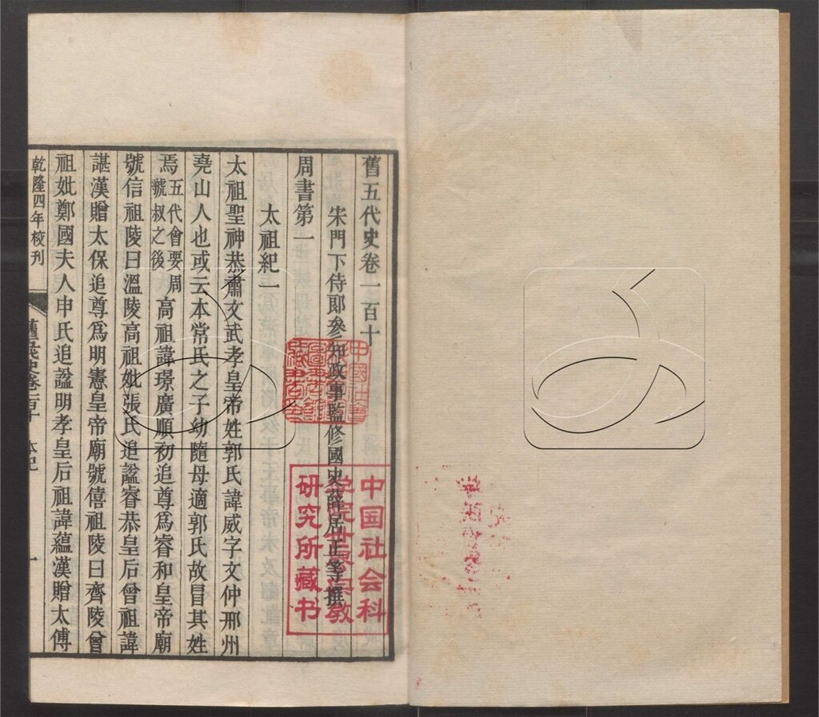 舊五代史卷一百十
宋門下侍郎參知政事監修國史薛居正等撰
周書第一
太祖紀一
太祖聖神恭肅文武孝皇帝姓郭氏諱威字文仲邢州
堯山人也或云本常氏之子幼隨母適郭氏故冒其姓
焉五代會要周虢叔之後高祖諱璟廣順初追尊爲睿和皇帝廟
號信祖陵曰溫陵高祖妣張氏追諡睿恭皇后曾祖諱
諶漢贈太保追尊爲明憲皇帝廟號僖祖陵曰齊陵曾
祖妣鄭國夫人申氏追諡明孝皇后祖諱蘊漢贈太傅
乾隆四年校刊
中国社会科
学院世界宗教
研究所藏书